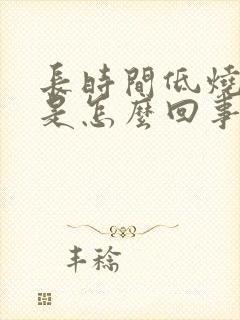 長時間低燒
是怎麼回事
丰稔